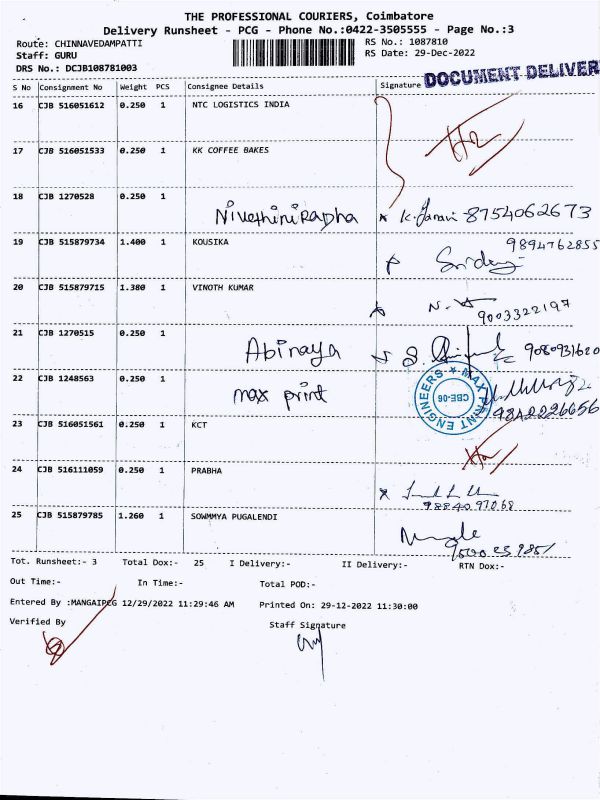 THE PROFESSIONAL COURIERS, Coimbatore
Delivery Runsheet - PCG - Phone No.:0422-3505555 - Page No.:3
Route: CHINNAVEDAMPATTI RS No.: 1087810
Staff: GURU RS Date: 29-Dec-2022
DRS No.: DCJB108781003
DOCUMENT DELIVER
S No Consignment No Weight PCS Consignee Details Signature
16 CJB 516051612 0.250 1 NTC LOGISTICS INDIA
17 CJB 516051533 0.250 1 KK COFFEE BAKES
18 CJB 1270528 0.250 1
Nivethini Rapha 8754062673
19 CJB 515879734 1.400 1 KOUSIKA 9894762855
20 CJB 515879715 1.380 1 VINOTH KUMAR
9003322197
21 CJB 1270515 0.250 1
Abinaya 9080931620
22 CJB 1248563 0.250 1
max print
MAX PRINT ENGINEERS
CBE-06
9842226656
23 CJB 516051561 0.250 1 KCT
24 CJB 516111059 0.250 1 PRABHA
25 CJB 515879785 1.260 1 SOWMMYA PUGALENDI
Tot. Runsheet:- 3 Total Dox:- 25 I Delivery:- II Delivery:- RTN Dox:-
Out Time:- In Time:- Total POD:-
Entered By :MANGAIPCG 12/29/2022 11:29:46 AM Printed On: 29-12-2022 11:30:00
Verified By Staff Signature